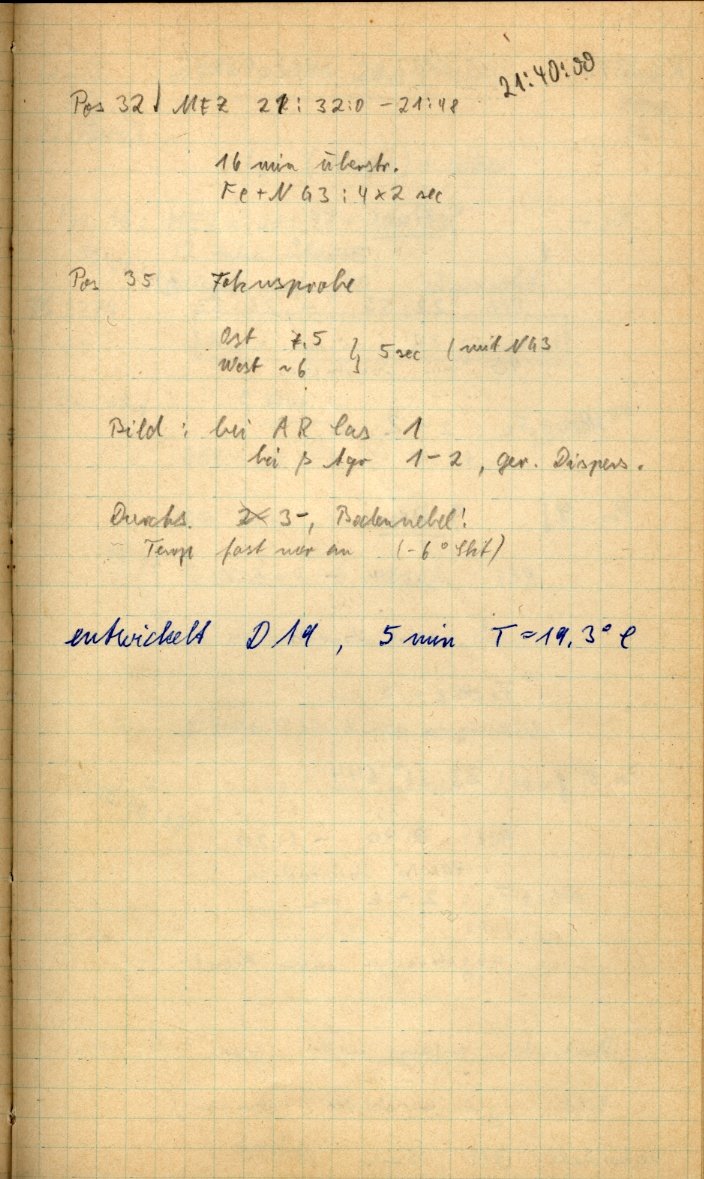 21:40:00
Pos 32 MEZ 21:32:0 - 21:48
16 min überstr.
Fe + NG3: 4×2 sec
Pos 35 Fokusprobe
Ost 7.5
West ~6 } 5 sec (mit NG3
Bild: bei AR Cas 1
bei β 1-2, ger. Dispers.
Durchs. 3-, Bodennebel!
Temp fast (-6°
entwickelt D19, 5 min T=19,3° C